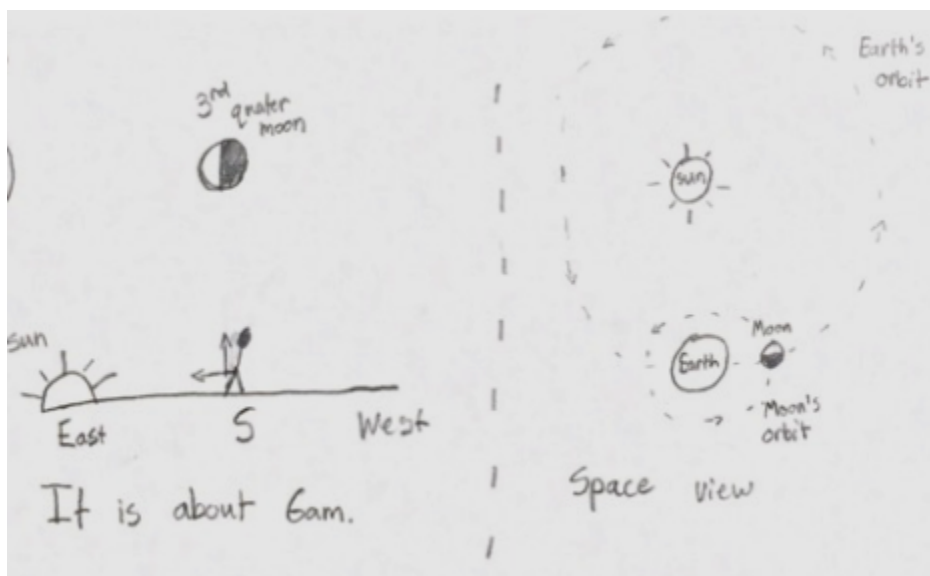 3rd
quater
moon
sun
East
S
West
It is about 6am.
Earth's
orbit
sun
Earth
Moon
Moon's
orbit
Space view